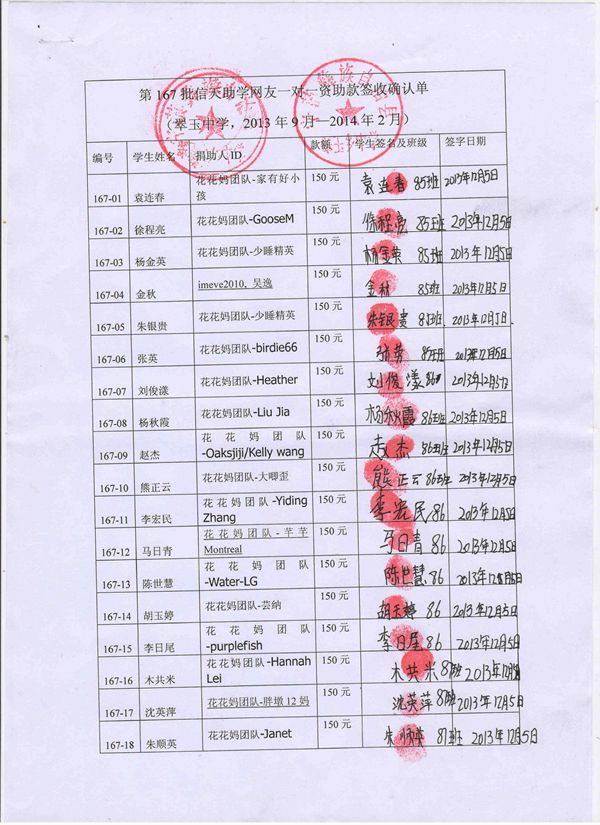 第 167 批信天助学网友一对一资助款签收确认单
（翠玉中学，2013 年 9 月—2014 年 2 月）
编号 学生姓名 捐助人 ID 款额 学生签名及班级 签字日期
167-01 袁连春 花花妈团队-家有好小孩 150 元 袁连春 85班 2013年12月5日
167-02 徐程亮 花花妈团队-GooseM 150 元 徐程亮 85班 2013年12月5日
167-03 杨金英 花花妈团队-少睡精英 150 元 杨金英 85班 2013年12月5日
167-04 金秋 imeve2010, 吴逸 150 元 金秋 85班 2013年12月5日
167-05 朱银贵 花花妈团队-少睡精英 150 元 朱银贵 85班 2013年12月5日.
167-06 张英 花花妈团队-birdie66 150 元 张英 85班 2013年12月5日
167-07 刘俊漾 花花妈团队-Heather 150 元 刘俊漾 86 2013年12月5日
167-08 杨秋霞 花花妈团队-Liu Jia 150 元 杨秋霞 86班 2013年12月5日
167-09 赵杰 花花妈团队-Oaksjiji/Kelly wang 150 元 赵杰 86班 2013年12月5日
167-10 熊正云 花花妈团队-大唧歪 150 元 熊正云 86班 2013年12月5日
167-11 李宏民 花花妈团队-Yiding Zhang 150 元 李宏民 86 2013年12月5日
167-12 马日青 花花妈团队-芊芊 Montreal 150 元 马日青 86 2013年12月5日
167-13 陈世慧 花花妈团队-Water-LG 150 元 陈世慧 86 2013年12月5日
167-14 胡玉婷 花花妈团队-芸纳 150 元 胡玉婷 86 2013年12月5日
167-15 李日尾 花花妈团队-purplefish 150 元 李日尾 86 2013年12月5日
167-16 木共米 花花妈团队-Hannah Lei 150 元 木共米 87班 2013年12月5日
167-17 沈英萍 花花妈团队-胖墩 12 妈 150 元 沈英萍 87班 2013年12月5日
167-18 朱顺英 花花妈团队-Janet 150 元 朱顺英 87班 2013年12月5日